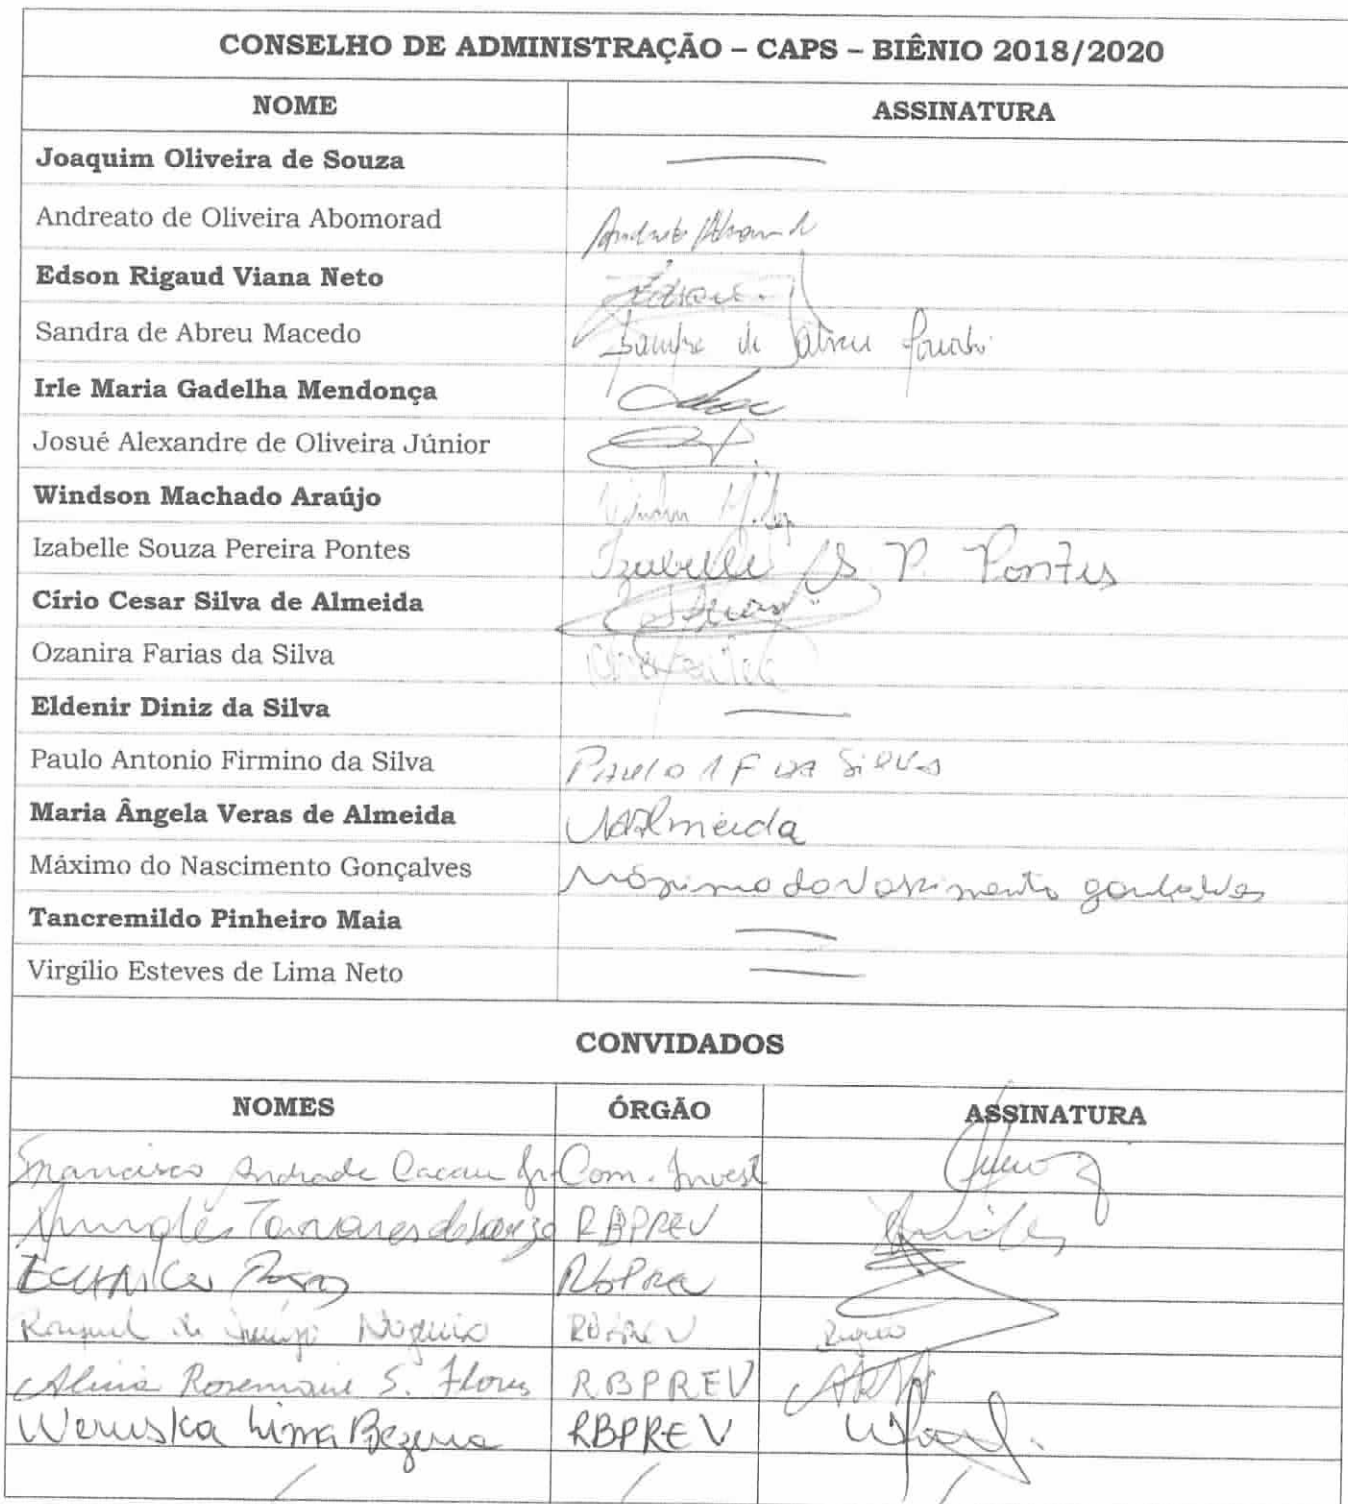 CONSELHO DE ADMINISTRAÇÃO – CAPS – BIÊNIO 2018/2020
NOME ASSINATURA
Joaquim Oliveira de Souza
Andreato de Oliveira Abomorad
Edson Rigaud Viana Neto
Sandra de Abreu Macedo Sandra de Abreu
Irle Maria Gadelha Mendonça
Josué Alexandre de Oliveira Júnior
Windson Machado Araújo
Izabelle Souza Pereira Pontes Izabelle S. P. Pontes
Círio Cesar Silva de Almeida
Ozanira Farias da Silva
Eldenir Diniz da Silva
Paulo Antonio Firmino da Silva Paulo A F da Silva
Maria Ângela Veras de Almeida MAAlmeida
Máximo do Nascimento Gonçalves Máximo do Nascimento Gonçalves
Tancremildo Pinheiro Maia
Virgilio Esteves de Lima Neto
CONVIDADOS
NOMES ÓRGÃO ASSINATURA
Francisco Andrade Cacau Jr Com. Invest
Tavares de RBPREV
RBPREV
Raquel de Araújo Nogueira RBPREV
Alicia Rosemarie S. Flores RBPREV
Weruska Lima Bezerra RBPREV